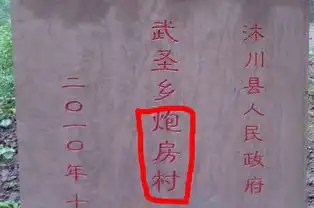 沐川县人民政府
武圣乡炮房村
二〇一〇年十